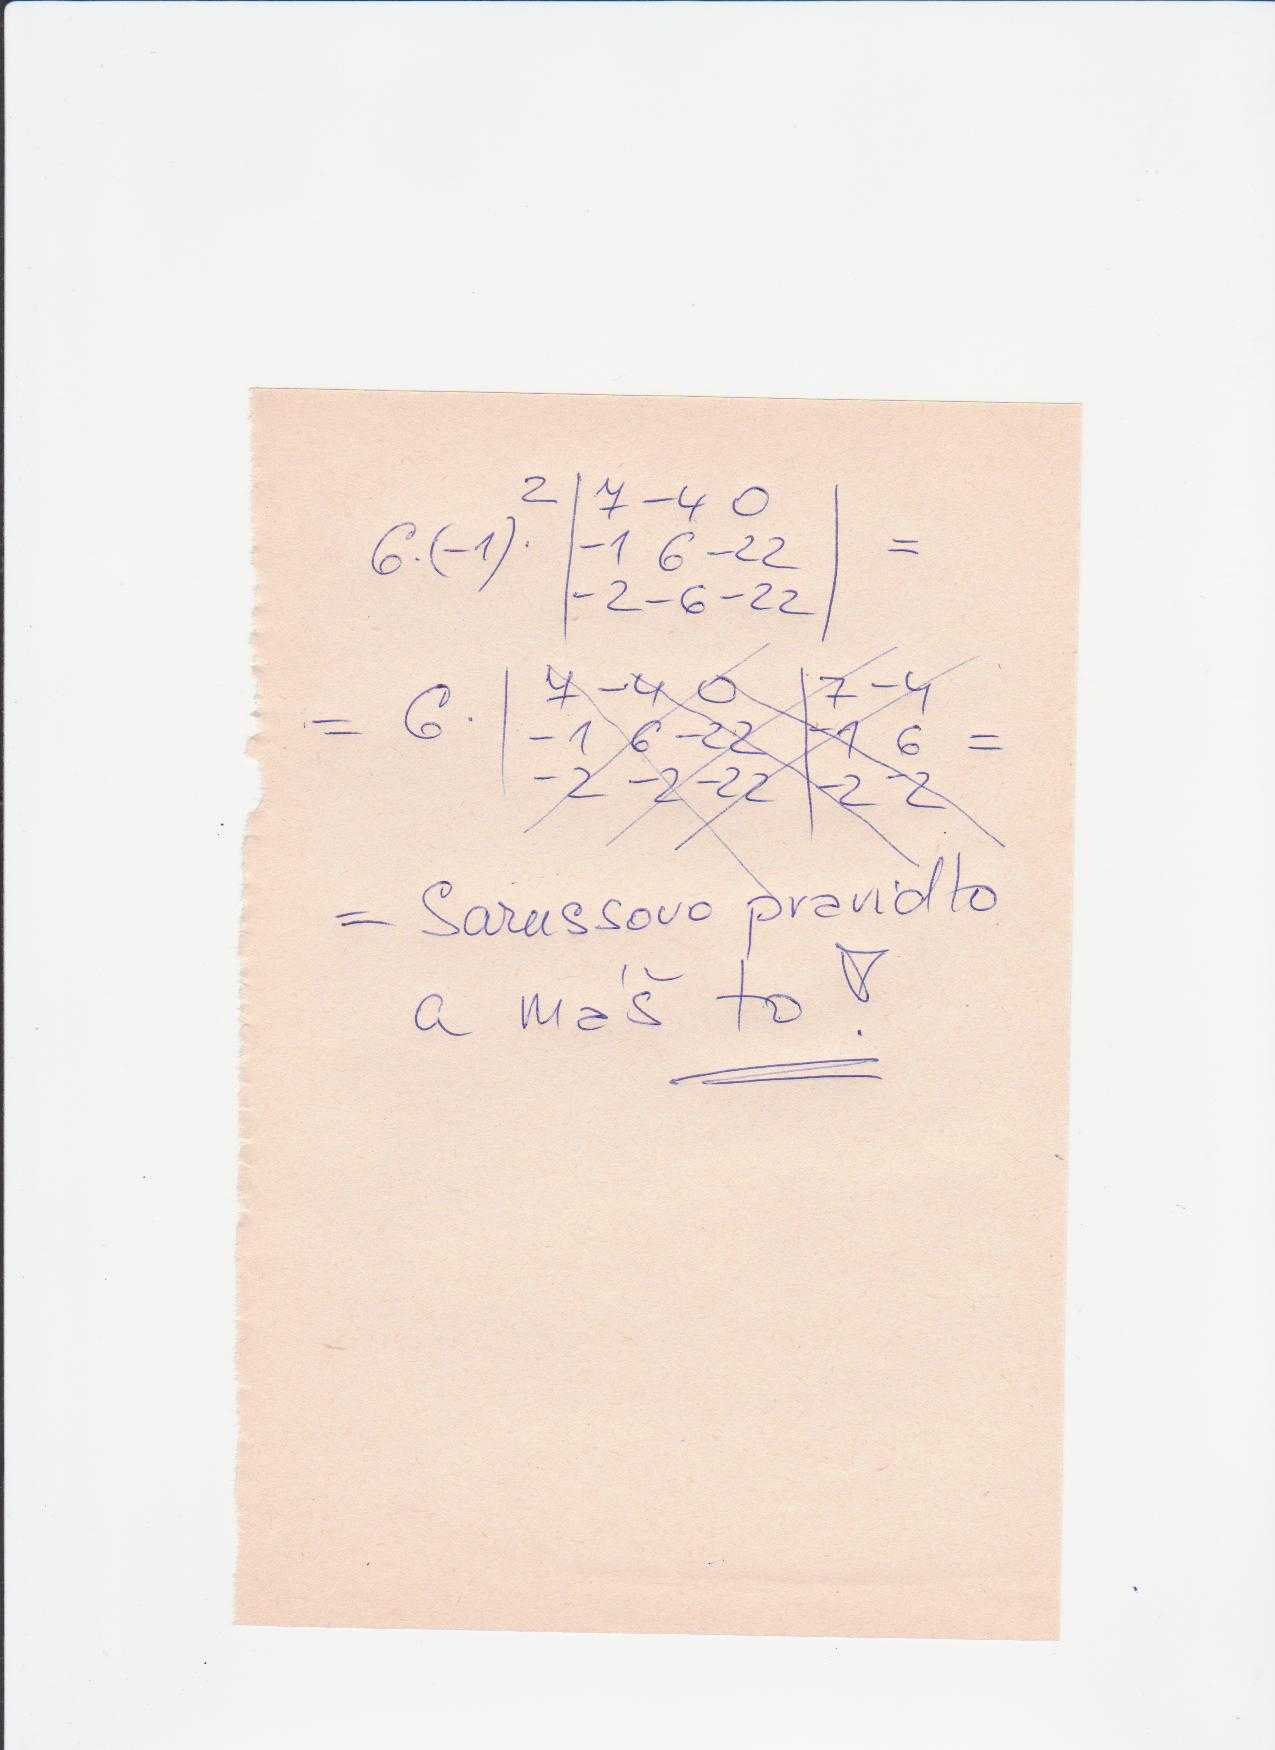 6·(-1)²· | 7 -4 0 | =
| -1 6 -22 |
| -2 -6 -22 |
= 6· | 7 -4 0 | 7 -4
| -1 6 -22 | -1 6 =
| -2 -2 -22 | -2 -2
= Sarussovo pravidlo
a máš to!